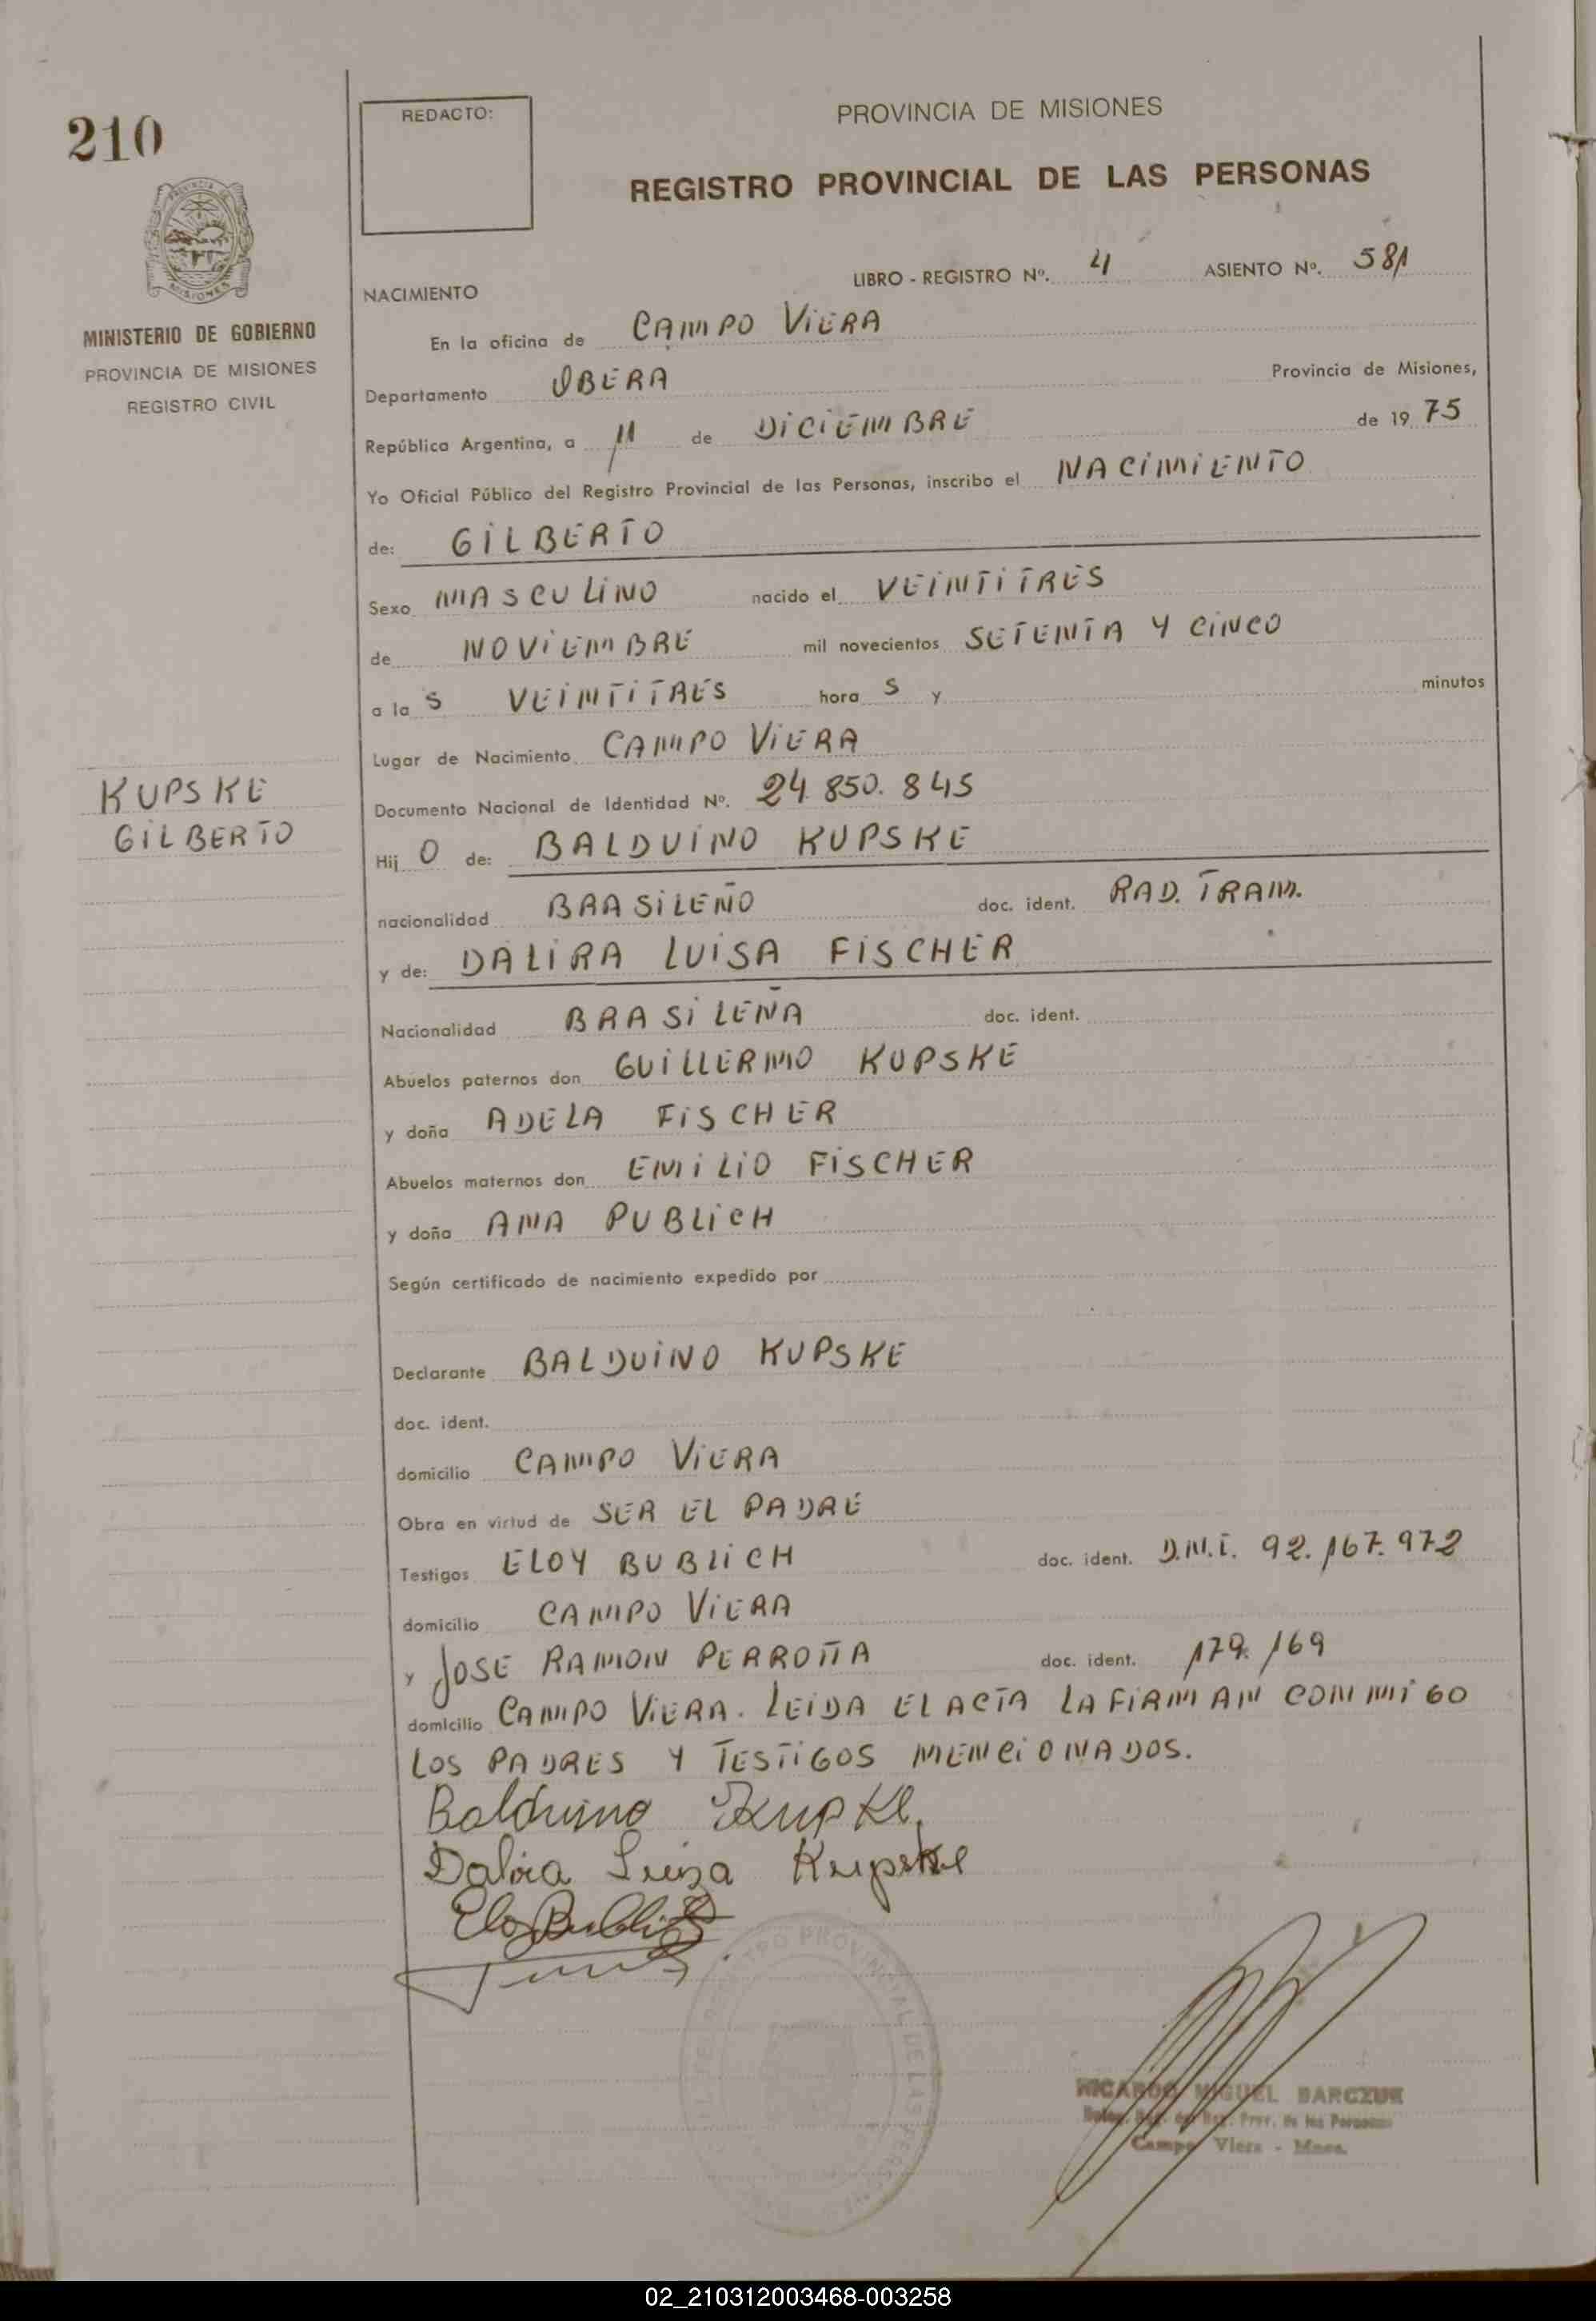 210
REDACTO:
PROVINCIA DE MISIONES
REGISTRO PROVINCIAL DE LAS PERSONAS
MINISTERIO DE GOBIERNO
PROVINCIA DE MISIONES
REGISTRO CIVIL
NACIMIENTO
LIBRO - REGISTRO Nº. 4 ASIENTO Nº. 581
En la oficina de CAMPO VIERA
Departamento OBERA Provincia de Misiones,
República Argentina, a 11 de DICIEMBRE de 1975
Yo Oficial Público del Registro Provincial de las Personas, inscribo el NACIMIENTO
de: GILBERTO
Sexo MASCULINO nacido el VEINTITRES
de NOVIEMBRE mil novecientos SETENTA Y CINCO
a la S VEINTITRES hora S y minutos
Lugar de Nacimiento CAMPO VIERA
KUPSKE
GILBERTO
Documento Nacional de Identidad Nº. 24.850.845
Hij O de: BALDUINO KUPSKE
nacionalidad BRASILEÑO doc. ident. RAD. TRAM.
y de: DALIRA LUISA FISCHER
Nacionalidad BRASILEÑA doc. ident.
Abuelos paternos don GUILLERMO KUPSKE
y doña ADELA FISCHER
Abuelos maternos don EMILIO FISCHER
y doña ANA PUBLICH
Según certificado de nacimiento expedido por
Declarante BALDUINO KUPSKE
doc. ident.
domicilio CAMPO VIERA
Obra en virtud de SER EL PADRE
Testigos ELOY BUBLICH doc. ident. D.N.I. 92.167.972
domicilio CAMPO VIERA
y JOSE RAMON PERROTTA doc. ident. 179.169
domicilio CAMPO VIERA. LEIDA EL ACTA LA FIRMAN CONMIGO
LOS PADRES Y TESTIGOS MENCIONADOS.
Balduino Kupke
Dalira Luiza Kupske
Eloy Bublich
REGISTRO PROVINCIAL DE LAS PERSONAS
RICARDO MIGUEL BARCZUK
Prov. de las Personas
Campo Viera - Mnes.
02_210312003468-003258